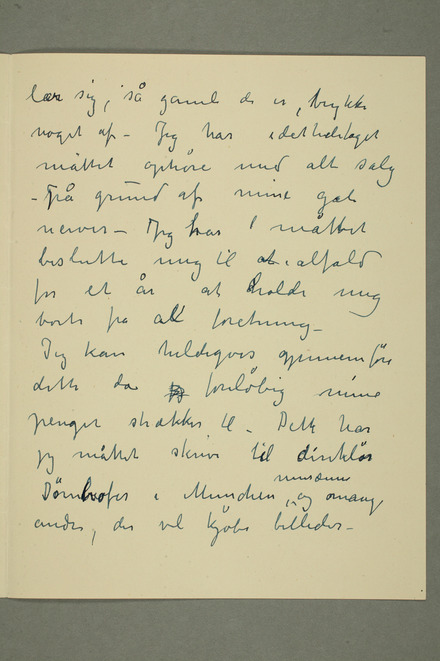 lær sig, så gamle de er, trykke
noget af – Jeg har idetheletaget
måttet ophøre med alt salg
– På grund af mine gale
nerver – Jeg har måttet
beslutte mig til at ialfald
for et år at holde mig
borte fra al forretning –
Jeg kan heldigvis gjennemføre
dette da foreløbig mine
penger strækker til – Dette har
jeg måttet skrive til direktør
Dörnhöfer i München museum, og mange
andre, der vil kjøbe billeder –